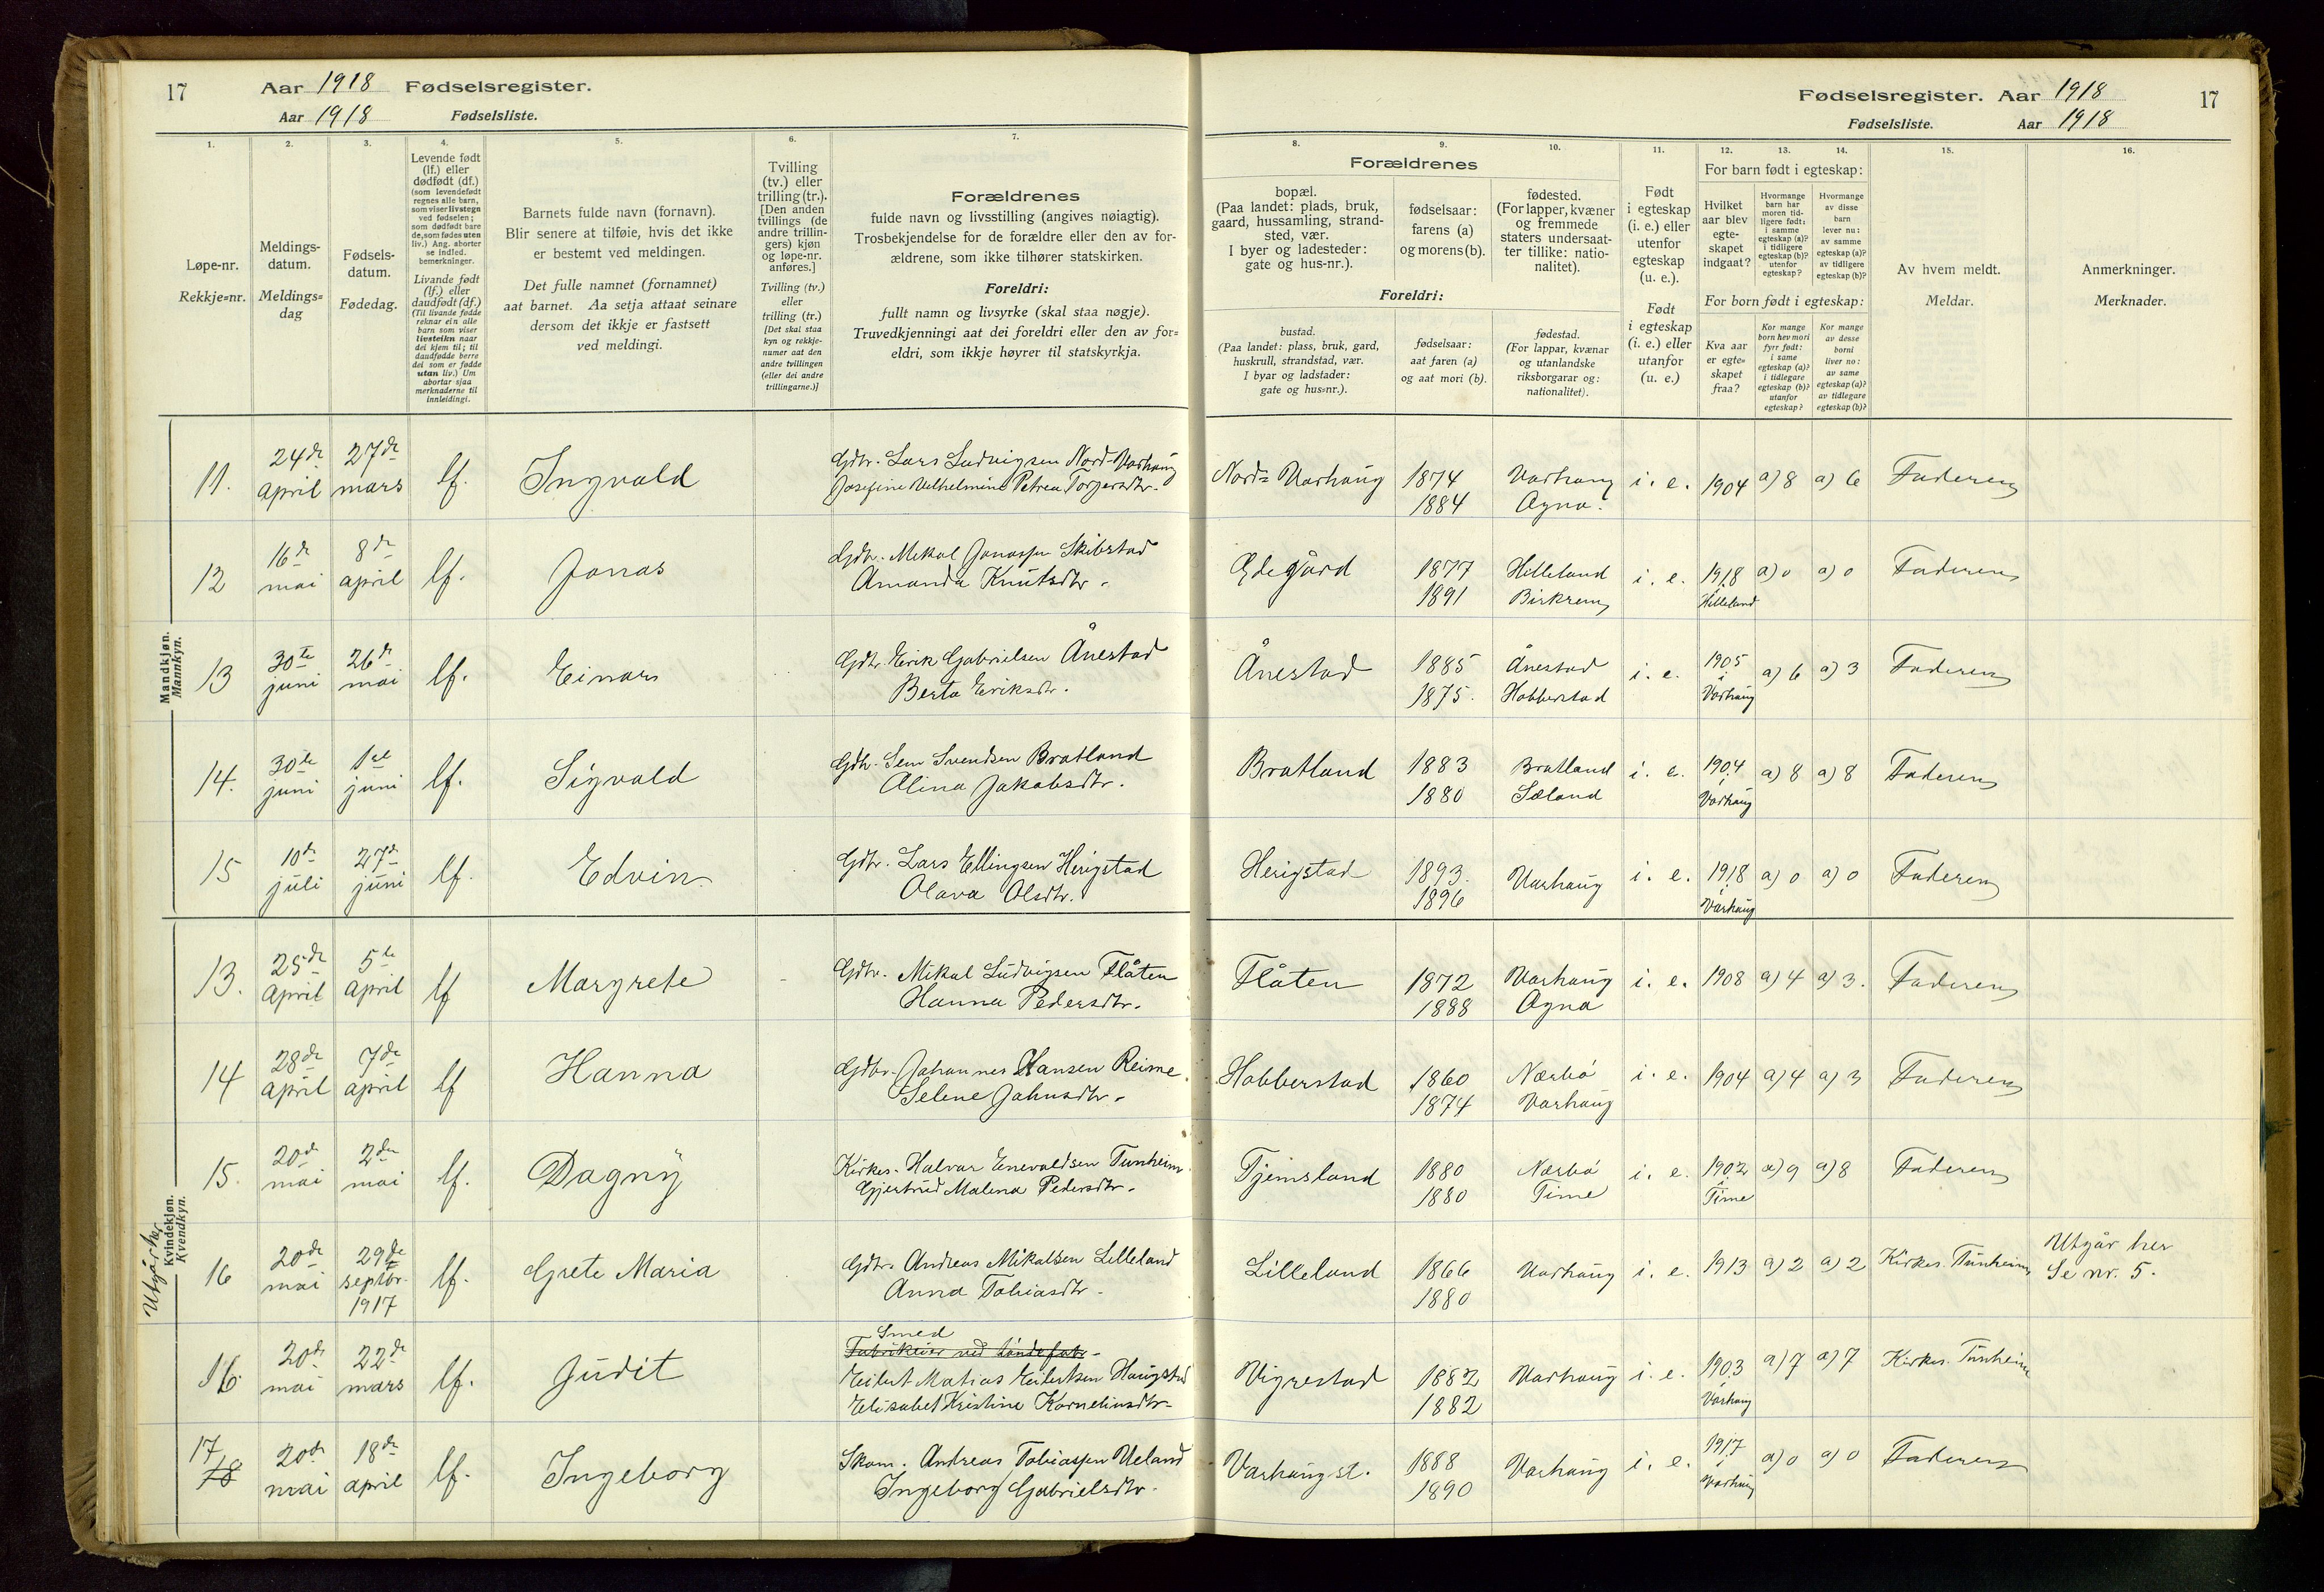 17 Aar 1918 Fødselsregister.
Aar 1918 Fødselsliste.
Fødselsregister. Aar 1918 17
Fødselsliste. Aar 1918
1. 2. 3. 4. 5. 6. 7.
Løpe-nr.
Rekkje=nr.
Meldings-
datum.
Meldings=
dag
Fødsels-
datum.
Fødedag.
Levende født
(lf.) eller
dødfødt (df.)
(som levendefødt
regnes alle barn,
som viser livstegn
ved fødselen;
som dødfødt bare
de, som fødes uten
liv.) Ang. aborter
se indled.
bemerkninger.
Livande født
(lf.) eller
daudfødt (df.)
(Til livande fødde
reknar ein alle
barn som viser
livsteikn naar
dei kjem til; til
daudfødde berre
dei som er fødde
utan liv.) Um
abortar sjaa
merknaderne til
innleidingi.
Barnets fulde navn (fornavn).
Blir senere at tilføie, hvis det ikke
er bestemt ved meldingen.
Det fulle namnet (fornamnet)
aat barnet. Aa setja attaat seinare
dersom det ikkje er fastsett
ved meldingi.
Tvilling
(tv.) eller
trilling (tr.).
[Den anden
tvillings (de
andre trillin-
gers) kjøn
og løpe-nr.
anføres.]
Tvilling (tv.)
eller
trilling (tr.)
[Det skal staa
kyn og rekkje-
numer aat den
andre tvillingen
(eller dei andre
trillingarne.)]
Forældrenes
fulde navn og livsstilling (angives nøiagtig).
Trosbekjendelse for de forældre eller den av for-
ældrene, som ikke tilhører statskirken.
Foreldri:
fullt namn og livsyrke (skal staa nøgje).
Truvedkjenningi aat dei foreldri eller den av for=
eldri, som ikkje høyrer til statskyrkja.
8. 9. 10. 11. 12. 13. 14. 15. 16.
Forældrenes
bopæl.
(Paa landet: plads, bruk,
gaard, hussamling, strand-
sted, vær.
I byer og ladesteder:
gate og hus-nr.).
fødselsaar:
farens (a)
og morens (b).
fødested.
(For lapper, kvæner
og fremmede
staters undersaat-
ter tillike: natio-
nalitet).
Foreldri:
bustad.
(Paa landet: plass, bruk, gard,
huskrull, strandstad, vær.
I byar og ladstader:
gate og hus=nr.).
fødselsaar:
aat faren (a)
og aat mori (b).
fødestad.
(For lappar, kvænar
og utanlandske
riksborgarar og:
nationalitet).
Født
i egteskap
(i. e.) eller
utenfor
egteskap
(u. e.).
Født
i egteskap
(i. e.) eller
utanfor
(u. e.)
For barn født i egteskap:
Hvilket
aar blev
egte-
skapet
indgaat?
Hvormange
barn har
moren tid-
ligere født:
i samme
egteskap (a)?
i tidligere
egteskap (b)?
utenfor
egteskap?
Hvormange
av disse
barn
lever nu:
av samme
egteskap (a)?
av tidligere
egteskap (b)?
For born født i egteskap:
Kva aar
er egte=
skapet
fraa?
Kor mange
born hev mori
fyrr født:
i same
egteskap (a)?
i tidlegare
egteskap (b)?
utanfor
egteskap?
Kor mange
av desse
borni
liver no:
av same
egteskap (a)?
av tidlegare
egteskap (b)?
Av hvem meldt.
Meldar.
Anmerkninger.
Merknader.
Mandkjøn.
Mannkyn.
11. 24de april 27de mars lf. Ingvald Gdbr. Lars Ludvigsen Nord-Varhaug Josefine Vilhelmine Petrea Torgersdtr. Nord-Varhaug 1874 1884 Varhaug Ogna. i. e. 1904 a) 8 a) 6 Faderen
12 16de mai 8de april lf. Jonas Gdbr. Mikal Jonassen Skibstad Amanda Knutsdtr. Edegård 1877 1891 Hilleland Birkrem i. e. 1918 i Hilleland a) 0 a) 0 Faderen
13 30te juni 26de mai lf. Einar Gdbr. Eirik Gabrielsen Ånestad Berta Eriksdtr. Ånestad 1885 1875. Ånestad Hobberstad i. e. 1905 i Varhaug a) 6 a) 3 Faderen
14. 30te juni 1ste juni lf. Sigvald Gdbr. Sem Svendsen Bratland Alina Jakobsdtr. Bratland 1883 1880 Bratland Sæland i. e. 1904 i Varhaug a) 8 a) 8 Faderen
15 10de juli 27de juni lf. Edvin Gdbr. Lars Ellingsen Herigstad Olava Olsdtr. Herigstad 1893. 1896 Varhaug i. e. 1918 i Varhaug a) 0 a) 0 Faderen
Kvindekjøn.
Kvendkyn.
13. 25de April 5te April lf Margrete Gdbr. Mikal Ludvigsen Flåten Hanna Pedersdtr. Flåten 1872 1888 Varhaug Ogna i. e. 1908 a) 4 a) 3. Faderen
14 28de april 7de april lf Hanna Gdbr. Johannes Hansen Reime Selene Johnsdtr. Hobberstad 1860 1874 Nærbø Varhaug i. e. 1904 a) 4 a) 3 Faderen
15. 20de mai 2den mai lf. Dagny Kirkes. Halvar Enevaldsen Tunheim Gjertrud Malena Pedersdtr. Tjemsland 1880 1880 Nærbø Time i. e. 1902 i Time a) 9 a) 8 Faderen
Utgår her
16 20de mai 29de septbr. 1917 lf. Grete Maria Gdbr. Andreas Mikalsen Lilleland Anna Tobiasdtr. Lilleland 1866 1880 Varhaug i. e. 1913 a) 2 a) 2 Kirkes. Tunheim Utgår her Se nr. 5.
16. 20de mai 22de mars lf. Judit Smed Fabrikeier ved Eilert Matias Eilertsen Haugstad Elisabet Kristine Korneliusdtr. Vigrestad 1882 1882 Varhaug i. e. 1903 i Varhaug a) 7 a) 7 Kirkes. Tunheim
17 18 20de mai 18de april lf. Ingeborg Skom. Andreas Tobiassen Ueland Ingeborg Gabrielsdtr. Varhaug st. 1888 1890 Varhaug i. e. 1917 i Varhaug a) 0 a) 0 Faderen